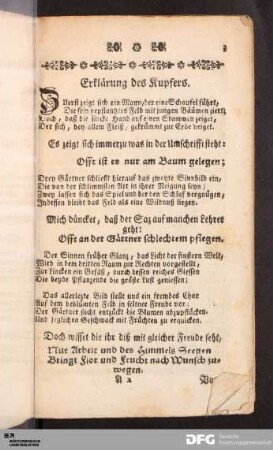 Erklärung des Kupfers.
Zuerst zeigt sich ein Mann, der eine Schaufel führt,
Die sein neptlantztes Feld mit jungen Bäumen ziert;
Doch, daß die lincke Hand auf einen Stammen zeiget,
Der sich, bey allem Fleiß, gekrümmt zur Erde beiget.
Es zeigt sich immerzu was in der Umschrifft steht:
Offt ist es nur am Baum gelegen;
Drey Gärtner schließt hierauf das zweyte Sinnbild ein,
Die von der schlimmsten Art in ihrer Neigung seyn:
Zwey lassen sich das Spiel und der den Schlaf vergnügen,
Indessen bleibt das Feld als eine Wildnuß liegen.
Mich düncket, daß der Saz auf manchen Lehrer
geht:
Offt an der Gärtner schlechtem pflegen.
Der Sinnen früher Glanz, das Licht der finstern Welt,
Wird in dem dritten Raum zur Rechten vorgestellt,
Zur lincken ein Gefäß, durch dessen reiches Giessen
Die beyde Pflanzende die größte Lust geniessen;
Das allerlezte Bild stellt uns ein fremdes Chor
Auf dem beblümten Feld in seltner Freude vor:
Der Gärtner sucht entzückt die Blumen abzupflücken,
Und jeglichen Geschmack mit Früchten zu erquicken.
Doch wisset die ihr diß mit gleicher Freude seht,
Nur Arbeit und des Himmels Seegen
Bringt Flor und Frucht nach Wunsch zu-
wegen.
A 2
DFG Deutsche
Forschungsgemeinschaft